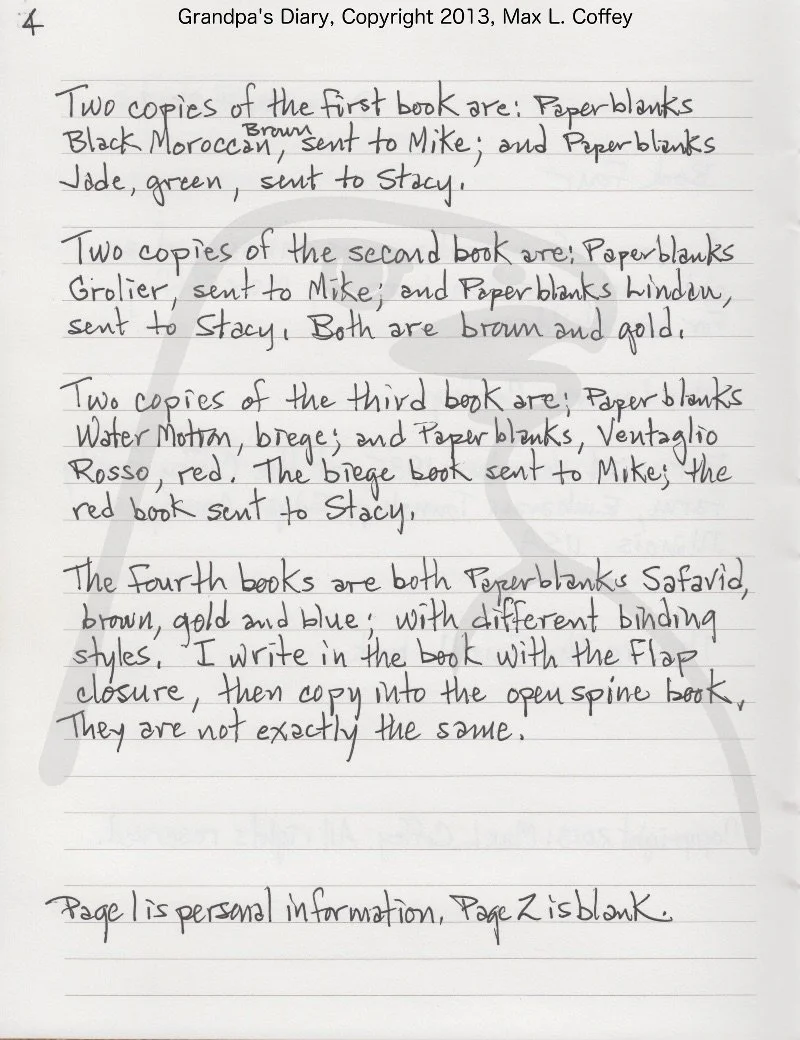 4
Grandpa's Diary, Copyright 2013, Max L. Coffey
Two copies of the first book are: Paperblanks
Brown
Black Moroccan, sent to Mike; and Paperblanks
Jade, green, sent to Stacy.
Two copies of the second book are: Paperblanks
Grolier, sent to Mike; and Paperblanks Lindau,
sent to Stacy. Both are brown and gold.
Two copies of the third book are; Paperblanks
Water Motion, biege; and Paperblanks, Ventaglio
Rosso, red. The biege book sent to Mike; the
red book sent to Stacy.
The fourth books are both Paperblanks Safavid,
brown, gold and blue; with different binding
styles. I write in the book with the flap
closure, then copy into the open spine book.
They are not exactly the same.
Page 1 is personal information. Page 2 is blank.